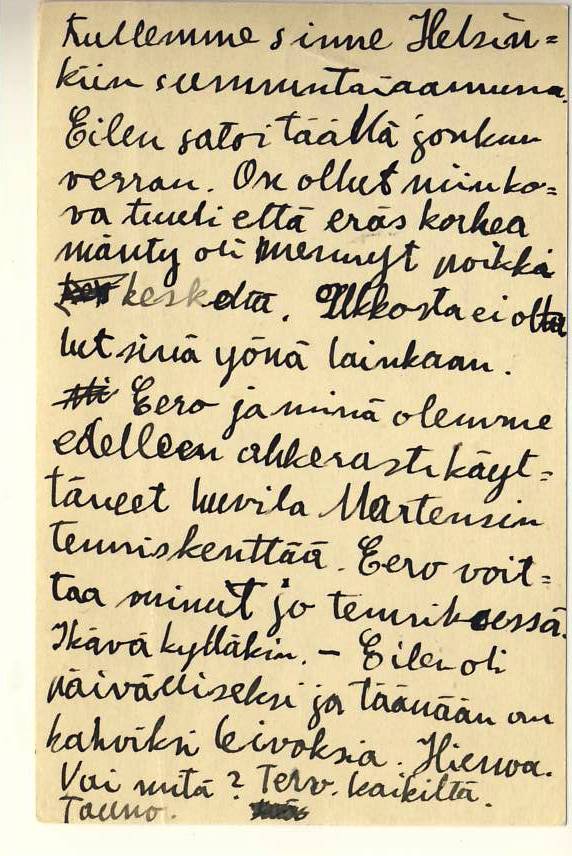 Tullemme sinne Helsin=
kiin sunnuntaiaamuna.
Eilen satoi täällä jonkun
verran. On ollut niin ko=
va tuuli että eräs korkea
mänty oli mennyt poikki
keskeltä. Ukkosta ei ol
lut sinä yönä lainkaan.
Eero ja minä olemme
edelleen ahkerasti käyt=
täneet huvila Martensin
tenniskenttää. Eero voit=
taa minut jo tenniksessä.
Ikävä kylläkin. – Eilen oli
päivälliseksi ja tänään on
kahviksi leivoksia. Hienoa.
Vai mitä? Terv. kaikilta.
Tauno.